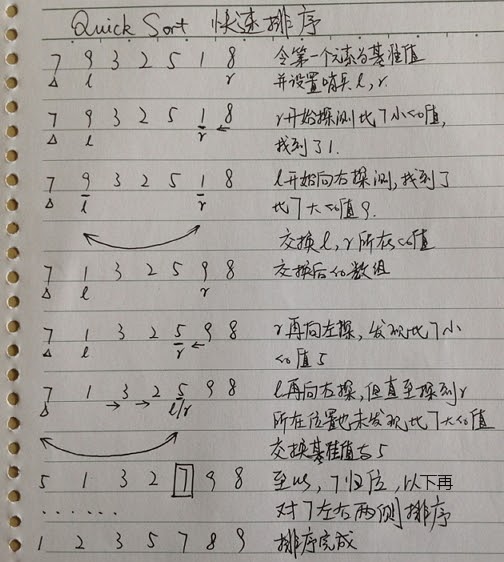 Quick Sort 快速排序
7 9 3 2 5 1 8 令第一个元素为基准值
△ l r 并设置哨兵 l, r.
7 9 3 2 5 1 8 r开始探测比7小的值,
△ l r ← 找到了1.
7 9 3 2 5 1 8 l开始向右探测,找到了
△ l r 比7大的值9.
交换l,r所在的值
7 1 3 2 5 9 8 交换后的数组
△ l r
7 1 3 2 5 9 8 r再向左探,发现比7小
△ l r ← 的值5
7 1 3 2 5 9 8 l再向右探,但直至探到r
△ → → l/r 所在位置也未发现比7大的值
交换基准值与5
5 1 3 2 7 9 8 至此,7归位,以下再
...... 对7左右两侧排序
1 2 3 5 7 8 9 排序完成